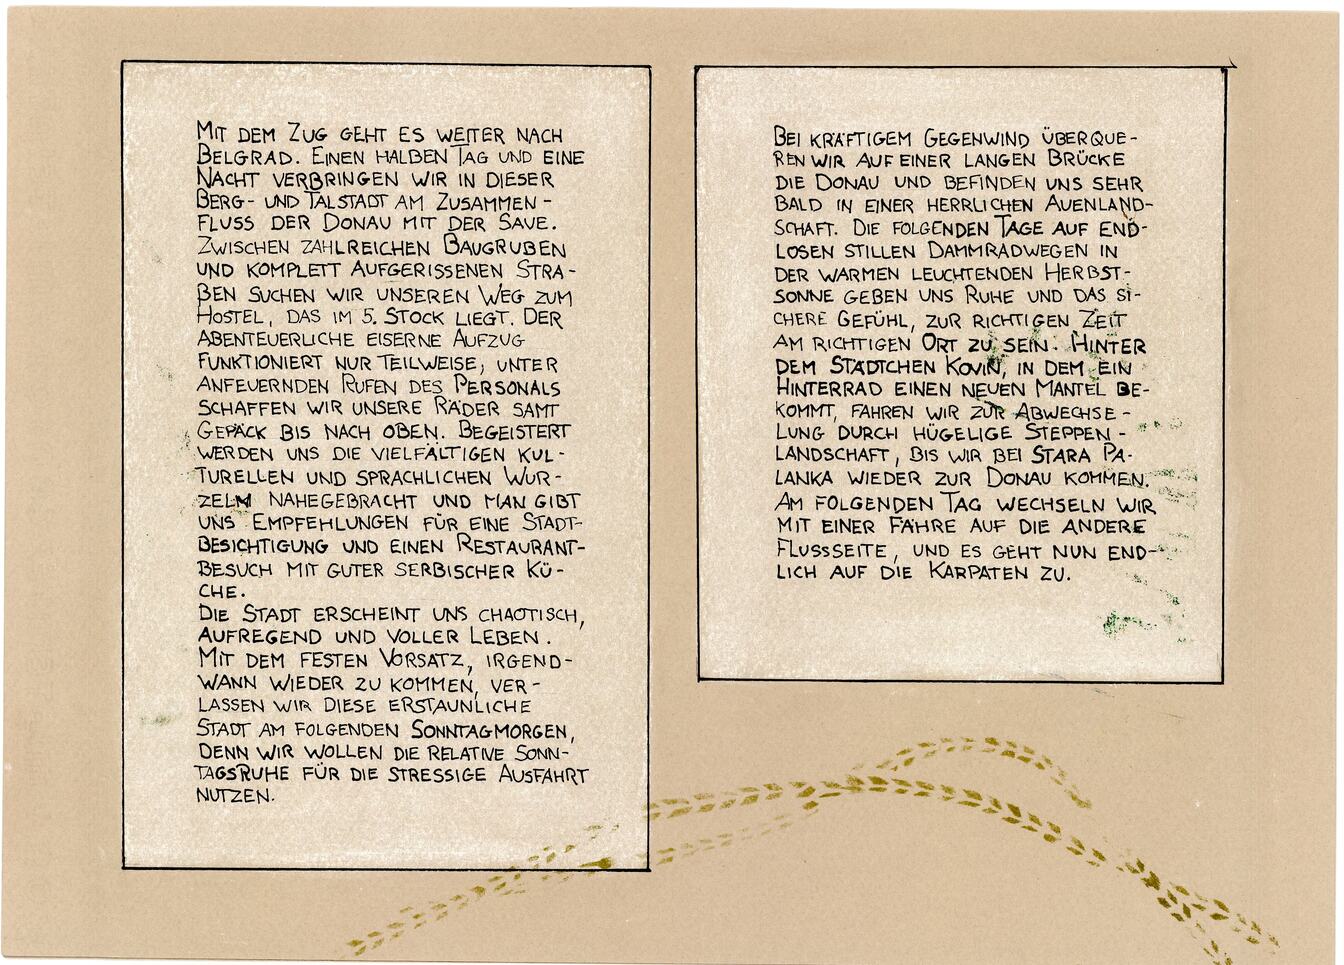 Mit dem Zug geht es weiter nach
Belgrad. Einen halben Tag und eine
Nacht verbringen wir in dieser
Berg- und Talstadt am Zusammen-
fluss der Donau mit der Save.
Zwischen zahlreichen Baugruben
und komplett aufgerissenen Stra-
ßen suchen wir unseren Weg zum
Hostel, das im 5. Stock liegt. Der
abenteuerliche eiserne Aufzug
funktioniert nur teilweise, unter
anfeuernden Rufen des Personals
schaffen wir unsere Räder samt
Gepäck bis nach oben. Begeistert
werden uns die vielfältigen kul-
turellen und sprachlichen Wur-
zeln nahegebracht und man gibt
uns Empfehlungen für eine Stadt-
besichtigung und einen Restaurant-
besuch mit guter serbischer Kü-
che.
Die Stadt erscheint uns chaotisch,
aufregend und voller Leben.
Mit dem festen Vorsatz, irgend-
wann wieder zu kommen, ver-
lassen wir diese erstaunliche
Stadt am folgenden Sonntagmorgen,
denn wir wollen die relative Sonn-
tagsruhe für die stressige Ausfahrt
nutzen.
Bei kräftigem Gegenwind überque-
ren wir auf einer langen Brücke
die Donau und befinden uns sehr
bald in einer herrlichen Auenland-
schaft. Die folgenden Tage auf end-
losen stillen Dammradwegen in
der warmen leuchtenden Herbst-
sonne geben uns Ruhe und das si-
chere Gefühl, zur richtigen Zeit
am richtigen Ort zu sein. Hinter
dem Städtchen Kovin, in dem ein
Hinterrad einen neuen Mantel be-
kommt, fahren wir zur Abwechse-
lung durch hügelige Steppen-
landschaft, bis wir bei Stara Pa-
lanka wieder zur Donau kommen.
Am folgenden Tag wechseln wir
mit einer Fähre auf die andere
Flussseite, und es geht nun end-
lich auf die Karpaten zu.